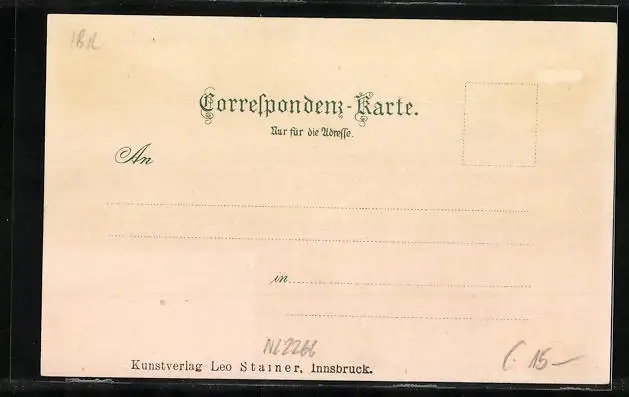 Correſpondenz-Karte.
Nur für die Adreſſe.
An
in
NL2266
15—
Kunstverlag Leo Stainer, Innsbruck.